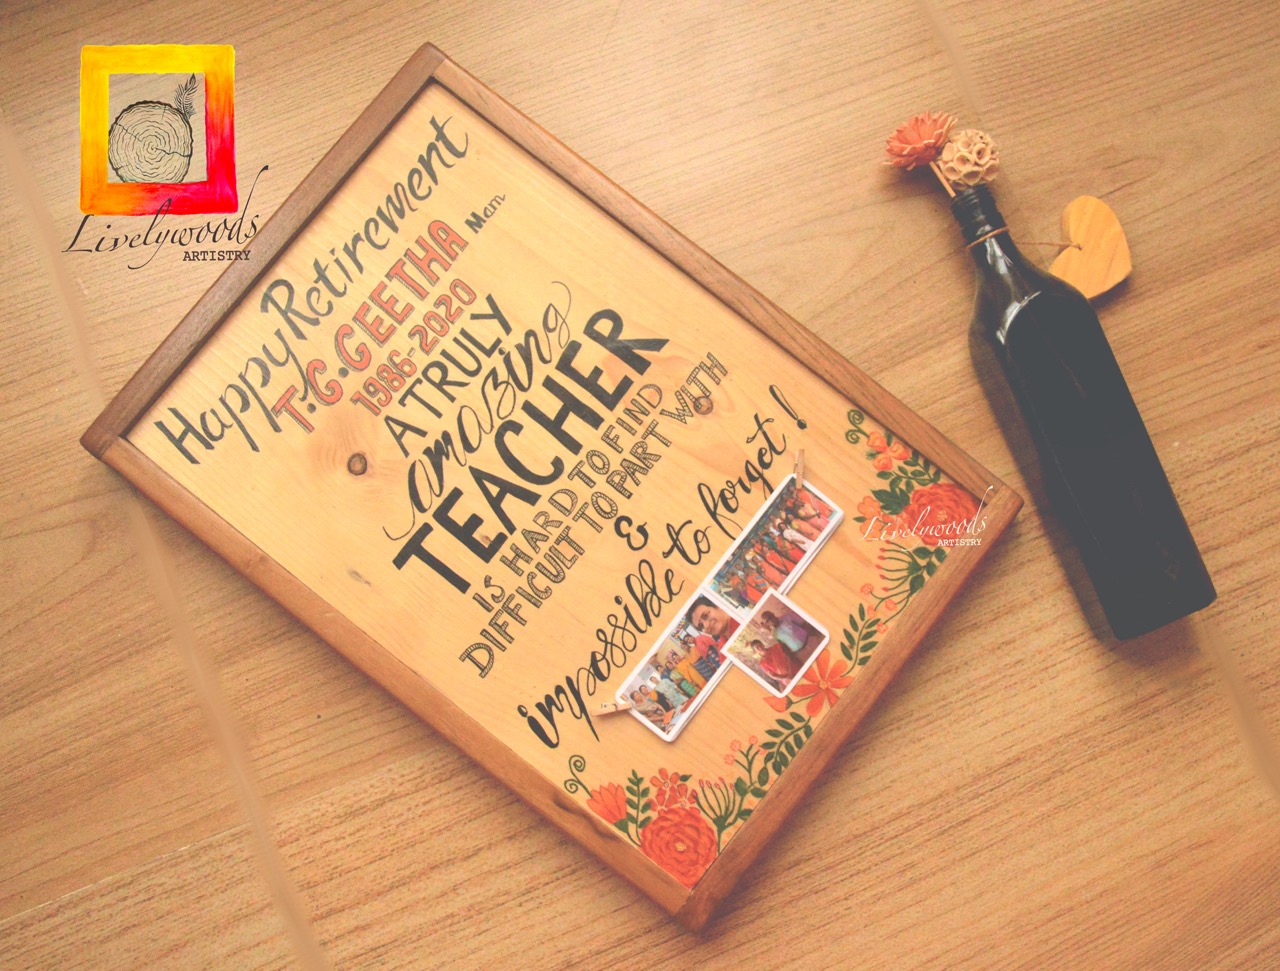 Livelywoods
ARTISTRY
Happy Retirement
T.G.GEETHA Mam
1986-2020
A TRULY
amazing
TEACHER
IS HARD TO FIND
DIFFICULT TO PART WITH
&
impossible to forget!
Livelywoods
ARTISTRY